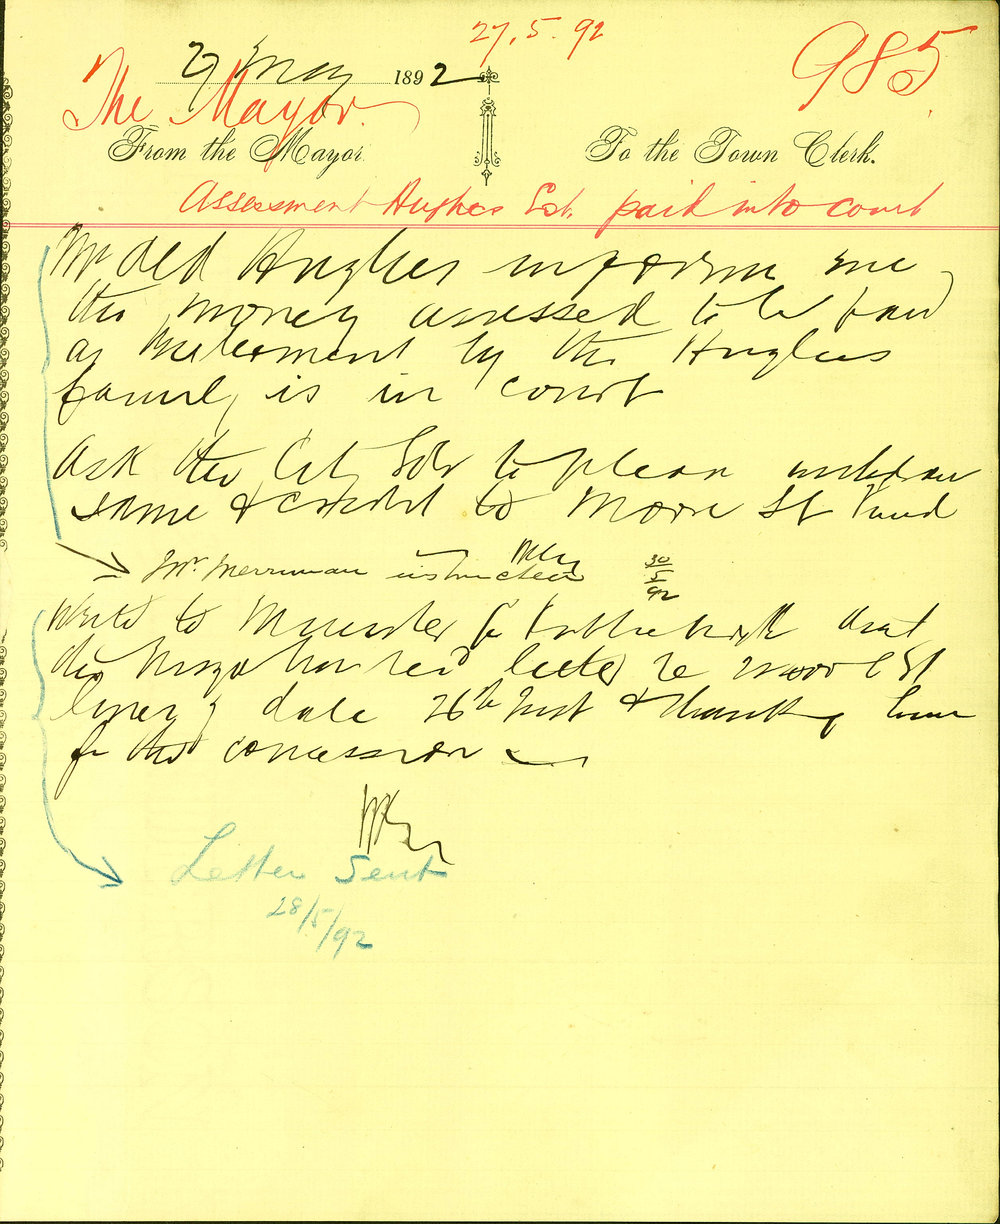 27.5.92
985
27 May 1892
The Mayor
From the Mayor
To the Town Clerk.
Assessment Hughes Est. paid into court
Mr Ald Hughes informs me
the money assessed to be paid
as betterment by the Hughes
family is in court
Ask the City Solr to please withdraw
same & credit to Moore St Fund
Mr Merriman instructed
30/5/92
Write to Minister for that
the Mayor has recd letter re Moore St
date 26th Inst & thanking him
for the concession
Letter Sent
28/5/92